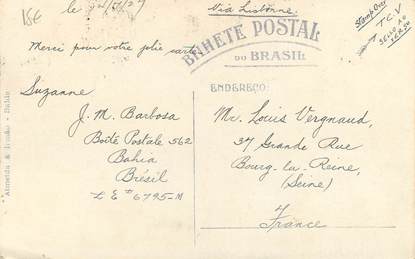 15€
le
Via Lisbonne
Stamp Over
T.C.V
Merci pour votre jolie carte
BILHETE POSTAL
DO BRASIL
Suzanne
J. M. Barbosa
Boîte Postale 562
Bahia
Brésil
L E # 6795-M
Almeida & Irmão - Bahia
ENDEREÇO
Mr. Louis Vergnaud,
37 Grande Rue
Bourg-la-Reine,
(Seine)
France